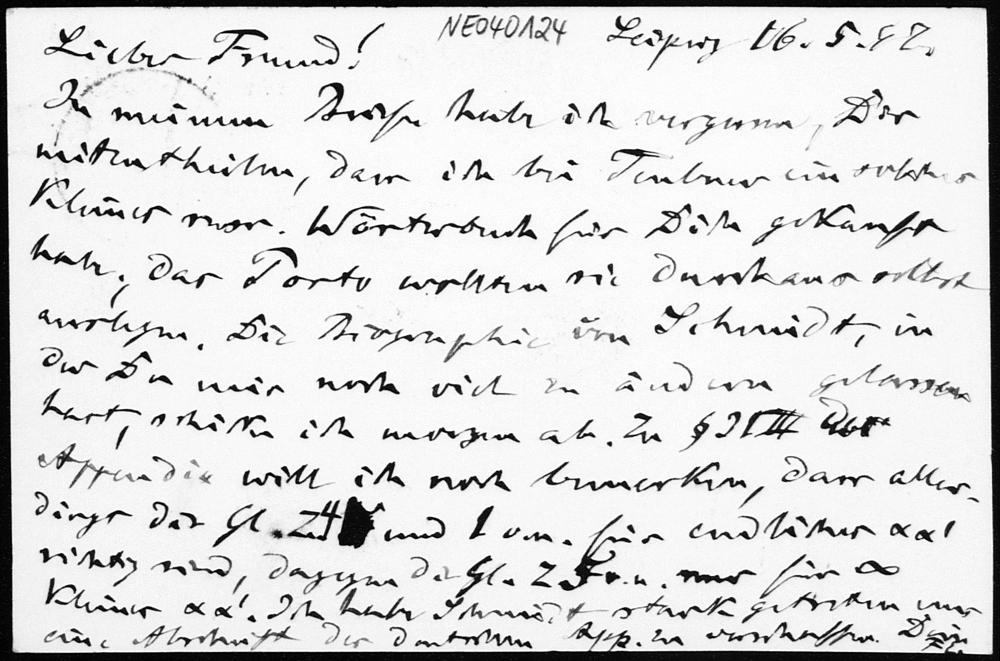 NE040124
Lieber Freund! Leipzig 16.5.97.
In meinem Briefe habe ich vergessen, Dir
mitzutheilen, dass ich bei Teubner ein solches
kleines russ. Wörterbuch für Dich gekauft
habe; das Porto wollten sie durchaus selbst
auslegen. Die Biographie von Schmidt, in
der Du mir noch viel zu ändern gelassen
hast, schicke ich morgen ab. Zu § III des
Appendix will ich noch bemerken, dass aller-
dings die Gl. Z 4 und 1 v.u. für endliches xx'
richtig sind, dagegen die Gl. Z 5 v.u. nur für ∞
kleines xx'. Ich habe Schmidt stark getreten mir
eine Abschrift der deutschen App. zu verschaffen. Dein